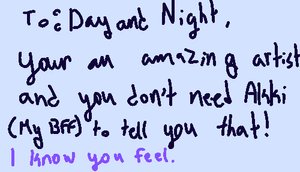 To: Day and Night,
Your an amazing artist
and you don't need Alkki
(My BFF) to tell you that!
I know you feel.